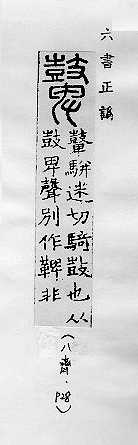 六書正譌
鼙
鼙駢迷切騎鼓也从
鼓卑聲別作鞞非
（八齊．P28）